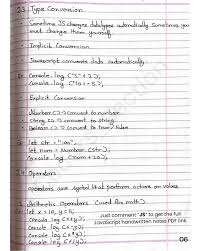 2.3 Type Conversion
Sometime JS changes datatypes automatically Sometimes you
must change them yourself.
Implicit Conversion
Javascript converts data automatically.
console.log("5"+2);
console.log("10"-5);
Explicit Conversion
Number() → convert to number
String() → convert to string
Boolean() → convert to true/false
let str = "100";
let num = Number(str);
console.log(num+20);
2.4 Operators
operators are symbol that perform actions on values
Arithmetic Operators (used for Math)
let x = 10, y = 5;
console.log(x+y);
console.log(x-y);
console.log(x*y);
console.log(x/y);
Just comment "JS" to get the full
JavaScript handwritten notes PDF link.
06